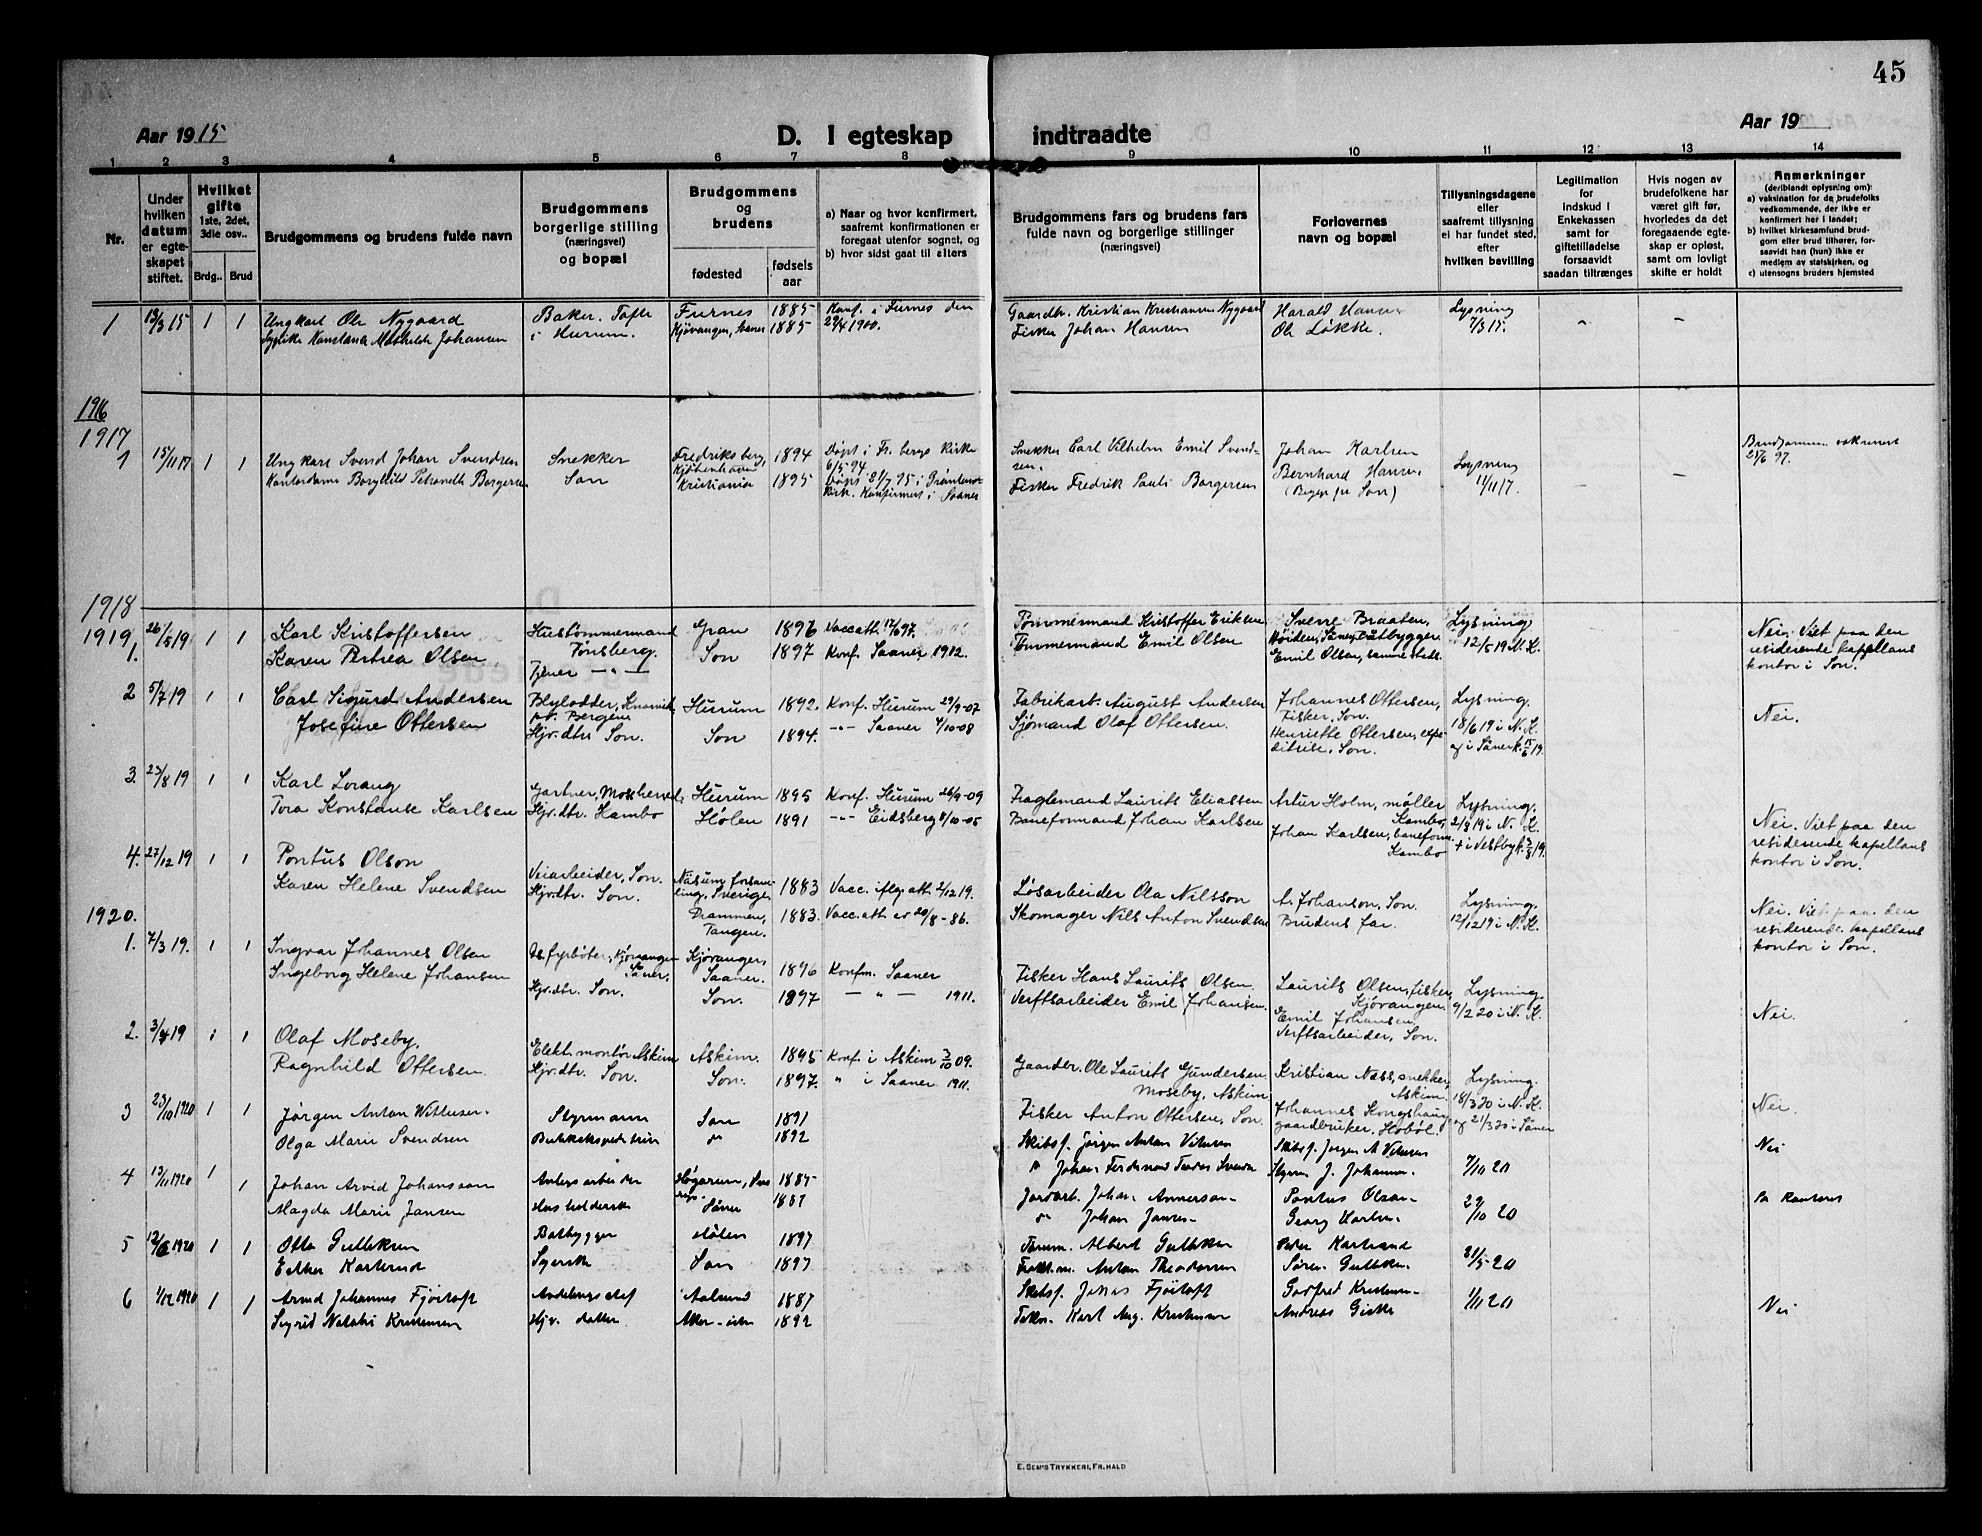 45
Aar 1915
D. I egteskap indtraadte
Aar 19
1 2 3 4 5 6 7 8 9 10 11 12 13 14
Nr.
Under hvilken datum er egteskapet stiftet.
Hvilket gifte
1ste, 2det, 3die osv..
Brdg.. Brud
Brudgommens og brudens fulde navn
Brudgommens borgerlige stilling (næringsvei) og bopæl
Brudgommens og brudens
fødested
fødsels aar
a) Naar og hvor konfirmert, saafremt konfirmationen er foregaat utenfor sognet, og
b) hvor sidst gaat til alters
Brudgommens fars og brudens fars fulde navn og borgerlige stillinger (næringsvei)
Forlovernes navn og bopæl
Tillysningsdagene eller saafremt tillysning ei har fundet sted, efter hvilken bevilling
Legitimation for indskud i Enkekassen samt for giftetilladelse forsaavidt saadan tiltrænges
Hvis nogen av brudefolkene har været gift før, hvorledes da det foregaaende egteskap er opløst, samt om lovligt skifte er holdt
Anmerkninger
(deriblandt oplysning om)
a) vaksination for de brudefolks vedkommende, der ikke er konfirmert her i landet;
b) hvilket kirkesamfund brudgom eller brud tilhører, forsaavidt han (hun) ikke er medlem av statskirken, og
c) utensogns bruders hjemsted
1 13/3 15 1 1 Ungkarl Ole Nygaard Baker. Tofte Furnes 1885 Konf. i Furnes den Gaardbr. Kristian Kristiansen Nygaard Harald Hansen Lysning
Konstanse Mathilde Johansen i Hurum. Kjøvangen, Saaner 1885 29/4 1900. Fisker Johan Hansen Ole Løkke. 7/3 15. - -
1916
1917
1 15/11 17 1 1 Ungkarl Svend Johan Svendsen Snekker Fredriksberg, Kjøbenhavn 1894 Døpt i Fr. bergs Kirke 6/5 94 Snekker Carl Vilhelm Emil Svendsen. Johan Karlsen Lysning Brudgommen vaksinert
Borghild Petrendte Borgersen Son Kristiania 1895 Døpt 21/7 95 i Grønlands Kirk. Konfirmert i Saaner Fisker Fredrik Pauli Borgersen Bernhard Hansen (Begge fr Son) 11/11 17. 25/6 97.
1918
1919
1. 26/5 19 1 1 Karl Kristoffersen Hustømmermand Tønsberg. Gran 1896 Vacc.att. 17/6 97. Tømmermand Kristoffer Eriksen Sverre Braaten, Lysning Nei. Viet paa den
Karen Petrea Olsen. Tjener -"- Son 1897 Konf. Saaner 1912. Tømmermand Emil Olsen Saner, Båtbygger Emil Olsen, sammesteds. 12/5 19 N. K. residerende kapellans kontor i Son.
2 5/7 19 1 1 Carl Sigurd Andersen Bergens Hurum 1892. Konf. Hurum 29/9-07 Fabrikarb. August Andersen Johannes Ottersen, Fisker, Son. Lysning. Nei.
Josefine Ottersen Hjv. dtr. Son. Son 1894. -"- Saaner 4/10-08 Sjømand Olaf Ottersen. Henriette Ottersen, expeditrise, Son. 18/6 19 i N. K. og i Såner k. 15/6 19.
3. 23/8 19 1 1 Karl Lorang Gartner, Mosseherred, Hurum 1895 Konf. Hurum 26/9-09 Fraglemand Laurits Eliassen Artur Holm, møller Kambo, Lysning. Nei. Viet paa den
Tora Konstanse Karlsen Hjv. dtr. Kambo Hølen 1891 -"- Eidsberg 8/10-05 Baneformand Johan Karlsen Johan Karlsen, baneform. Kambo 2/8 19 i N. K. + i Vestby k. 3/8 19. residerende kapellans kontor i Son.
4. 27/12 19 1 1 Pontus Olson Veiarbeider, Son. Näsum forsamling, Sverige, 1883 Vacc. iflg. att. 2/12 19. Løsarbeider Ola Nilsson A. Johanson, Son. Lysning. Nei. Viet paa den
Karen Helene Svendsen Hjv. dtr. Son. Drammen, Tangen. 1883. Vacc. att av 20/8-86. Skomager Nils Anton Svendsen Brudens far. 12/12 19 i N. K. residerende kapellans kontor i Son.
1920.
1. 7/3 19. 1 1 Ingvar Johannes Olsen fyrbøter, Kjøvangen Såner, Kjøvangen, Saaner. 1896 Konfm. Saaner Fisker Hans Laurits Olsen Laurits Olsen, fisker, Kjøvangen. Lysning. Nei.
Ingeborg Helene Johansen Hjv. dtr. Son. Son. 1897 -"- 1911. Verftsarbeider Emil Johansen. Emil Johansen, verftsarbeider, Son. 9/2 20 i N. K.
2. 3/4 19 1 1 Olaf Moseby, Elekt. montør Askim Askim. 1895 Konf. i Askim 3/10 09. Gaarder. Ole Laurits Gundersen Moseby, Askim Kristian Næss, snekker, Askim. Lysning. Nei.
Ragnhild Ottersen. Hjv. dtr. Son. Son. 1897. " i Saaner 1911. Fisker Anton Ottersen, Son. Johannes Kongshaug gaardbruker, Hobøl. 18/3 20 i N. K. og 21/3 20 i Såner
3 23/10 1920 1 1 Jørgen Anton Wittusen Styrmann Son 1891 Skibsf. Jørgen Anton Vitusen Skibsf. Jørgen A Vitusen 7/10 20 Nei
Olga Marie Svendsen do 1892 Johan Ferdinand Styrm. J. Johansen.
4 13/11 1920 1 1 Johan Arvid Johansson Anlegsarbeider 1885 Jordarb. Johan Annerson Pontus Olson 29/10 20
Magda Marie Jansen Husholderske Såner 1881 do Johan Jansen Georg Karlsen
5 12/6 1920 1 1 Otto Gulliksen Båtbygger Hølen 1897 Tømm. Albert Gulliksen Peder Kastrand 31/5-20
Esther Kasterud Syerske Son 1897 Anton Theodorsen Søren Gulliksen.
6 1/12 1920 1 1 Arvid Johannes Fjørtoft Aalesund 1887 Skibsf. Jonas Fjørtoft Godfred Kristensen 1/11 20 Nei
Sigrid Natalie Kristensen Hjv. datter 1892 Karl Aug. Kristensen Andreas Giske
E. SEM'S TRYKKERI, FR.HALD